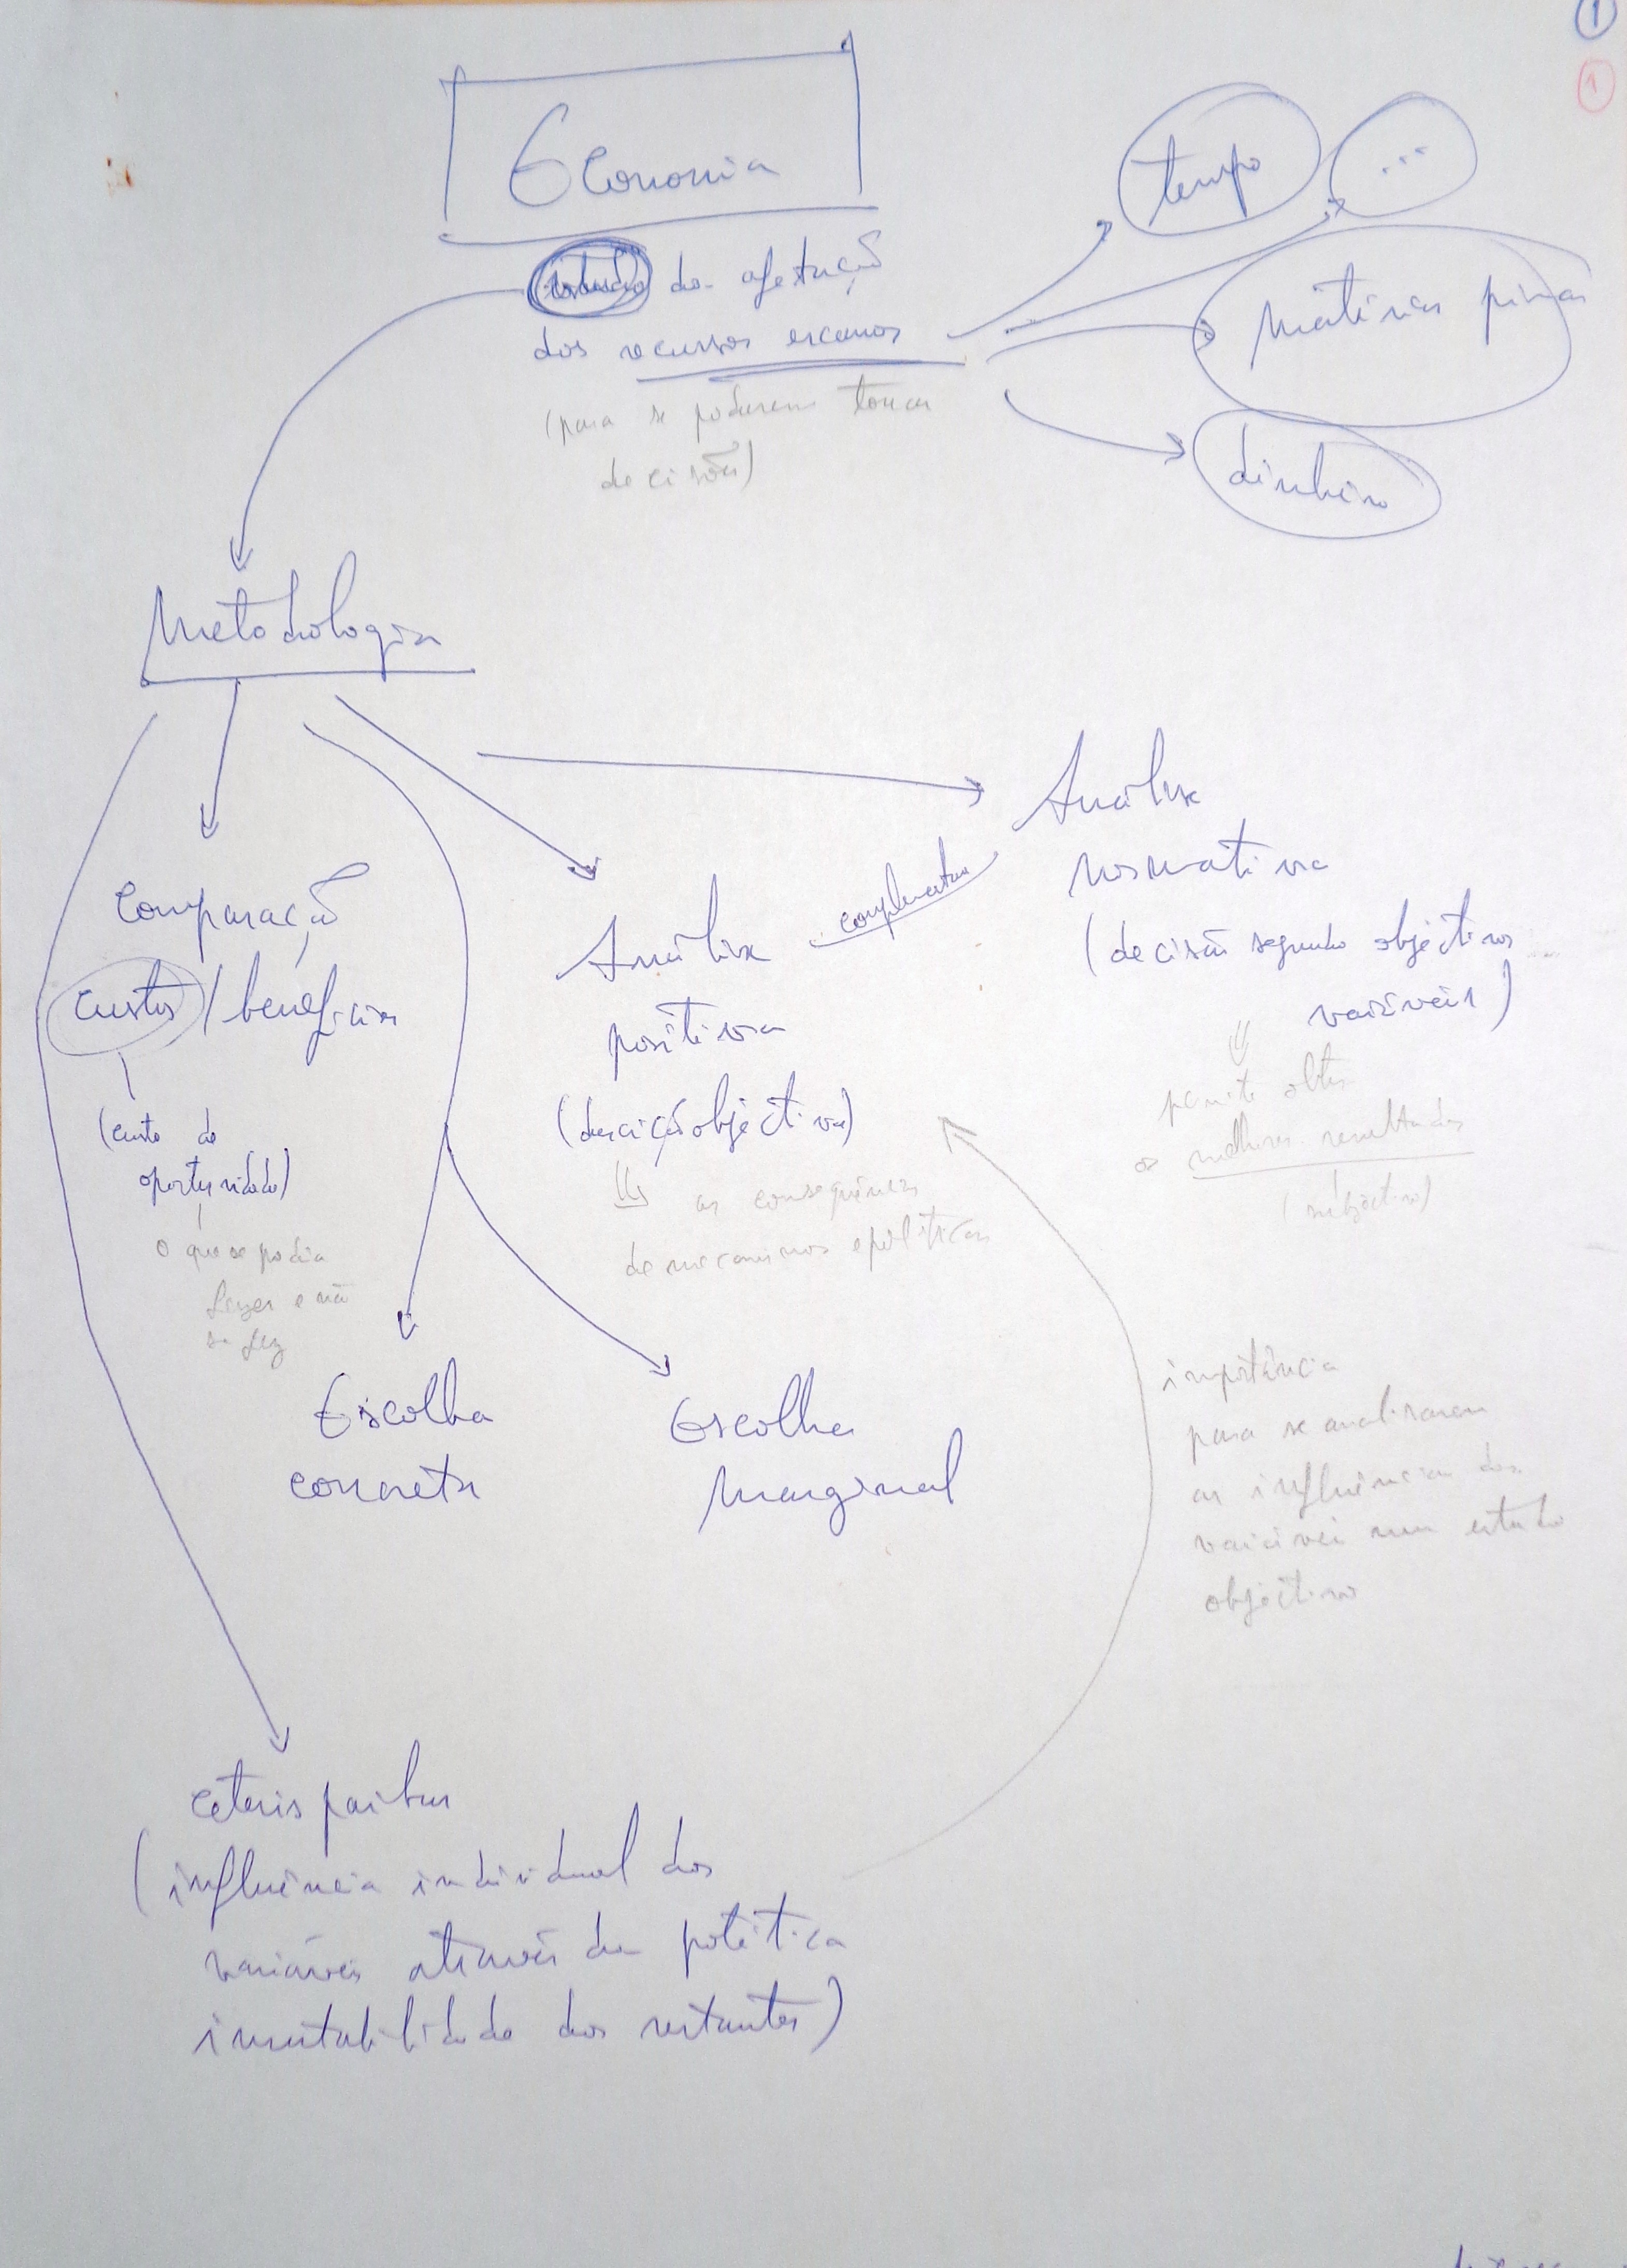 1
1
Economia
estudo da afetação
dos recursos escassos
(para se poderem tomar
decisões)
tempo
...
matérias primas
dinheiro
Metodologia
Comparação
custos / benefícios
(custo de
oportunidade)
o que se podia
fazer e não
se fez
Análise
positiva
(descição objectiva)
as consequências
de mecanismos e políticas
complementar
Análise
normativa
(decisão segundo objectivos
variáveis)
permite obter
os melhores resultados
(subjectivo)
Escolha
concreta
Escolha
marginal
importância
para se analisarem
as influências das
variáveis num estudo
objectivo
ceteris paribus
(influência individual das
variáveis através da
imutabilidade das restantes)